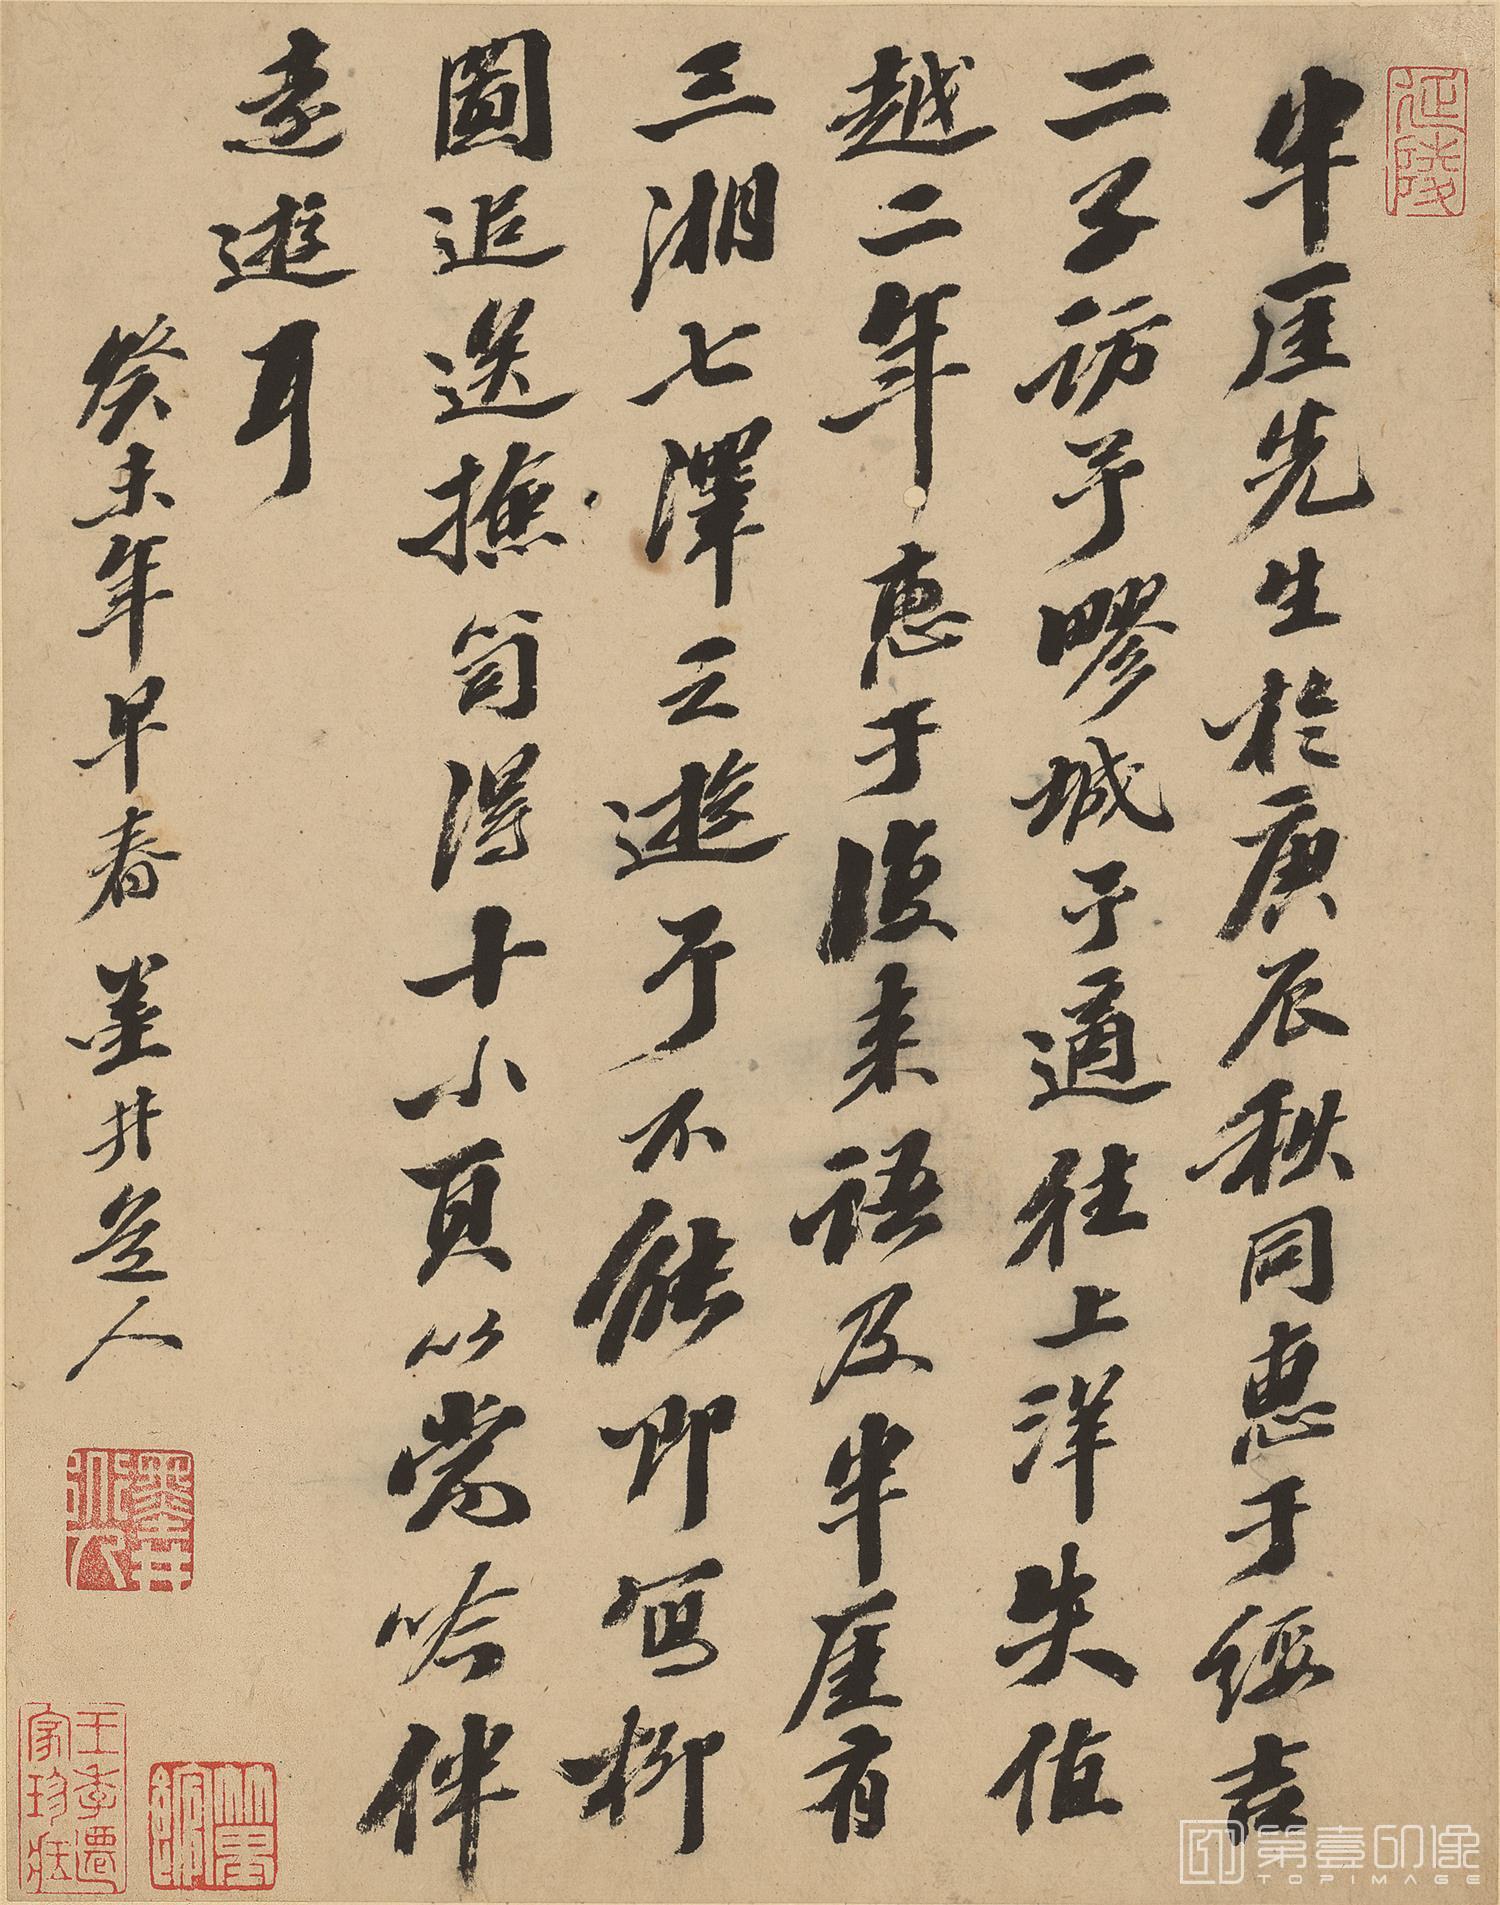 延陵
半厓先生於庚辰秋同惠于綏吉
二子訪予疁城予適往上洋失值
越二年惠于復來語及半厓有
三湘七澤之遊予不能即寫柳
圖追送撫笥得十小頁以當吟伴
遠遊耳
癸未年早春墨井道人
墨井道人
王季遷家珍藏
第壹印像
TOPIMAGE